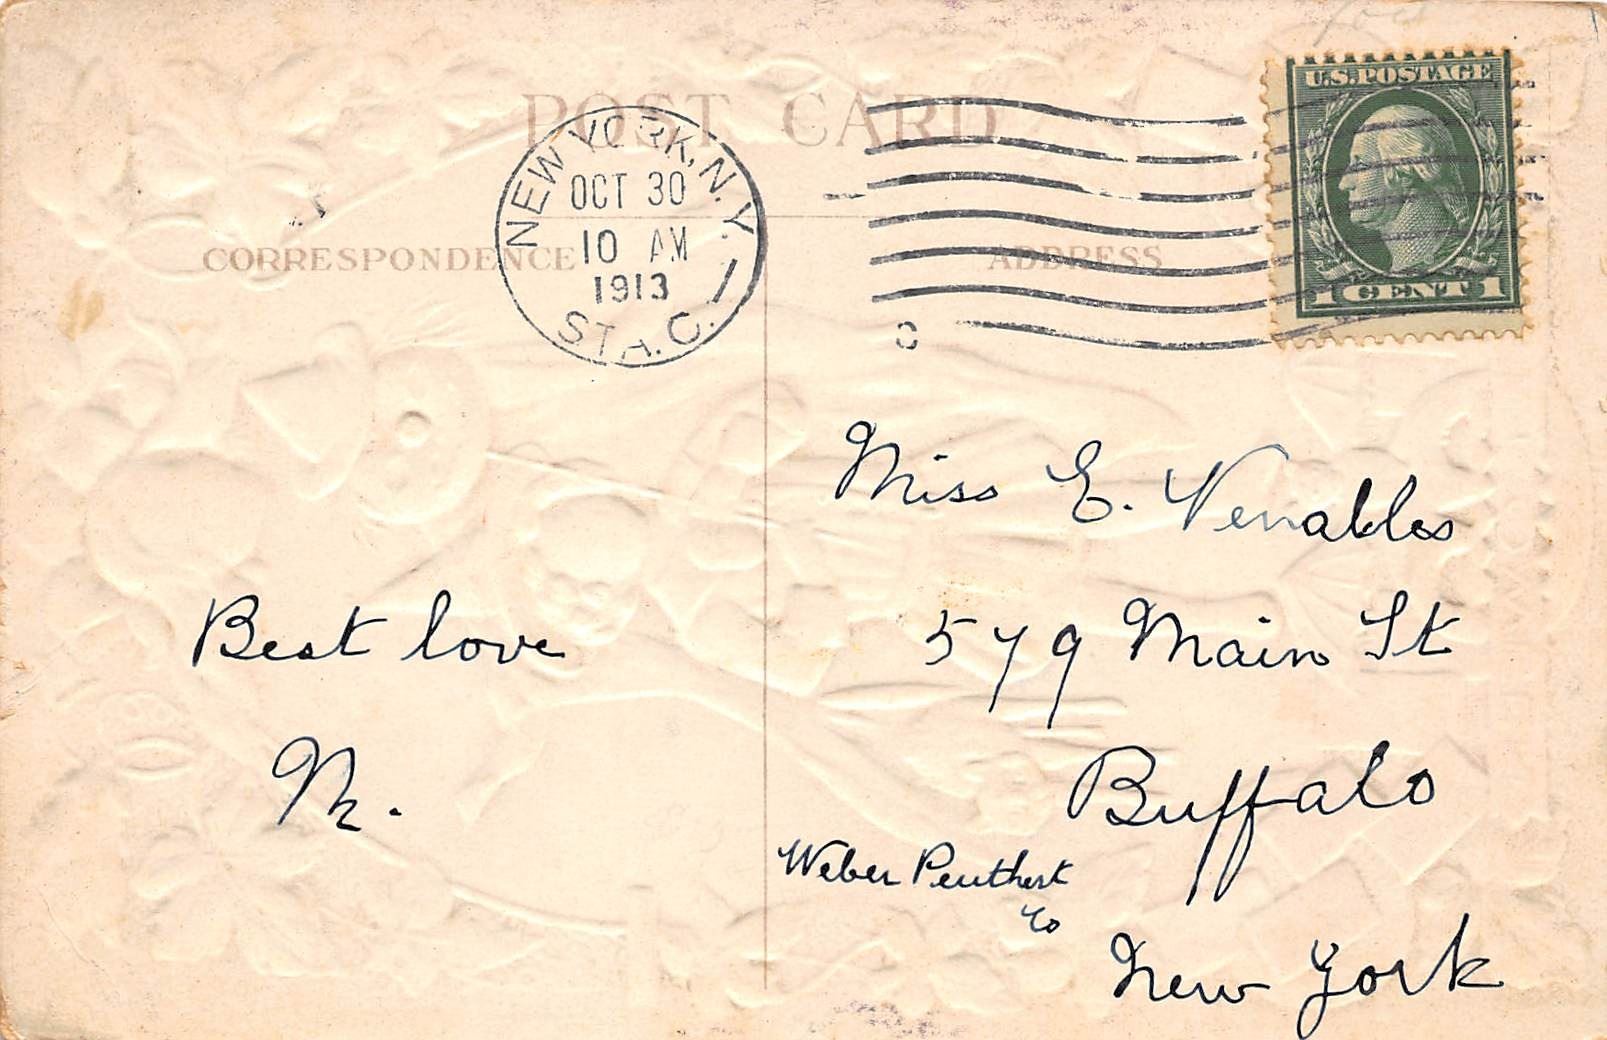 POST CARD
NEW YORK, N.Y.
OCT 30
10 AM
1913
STA. C.
C
U.S. POSTAGE
1 CENT 1
CORRESPONDENCE
ADDRESS
Best love
M.
Miss E. Venables
579 Main St
Buffalo
Weber
Co
New York